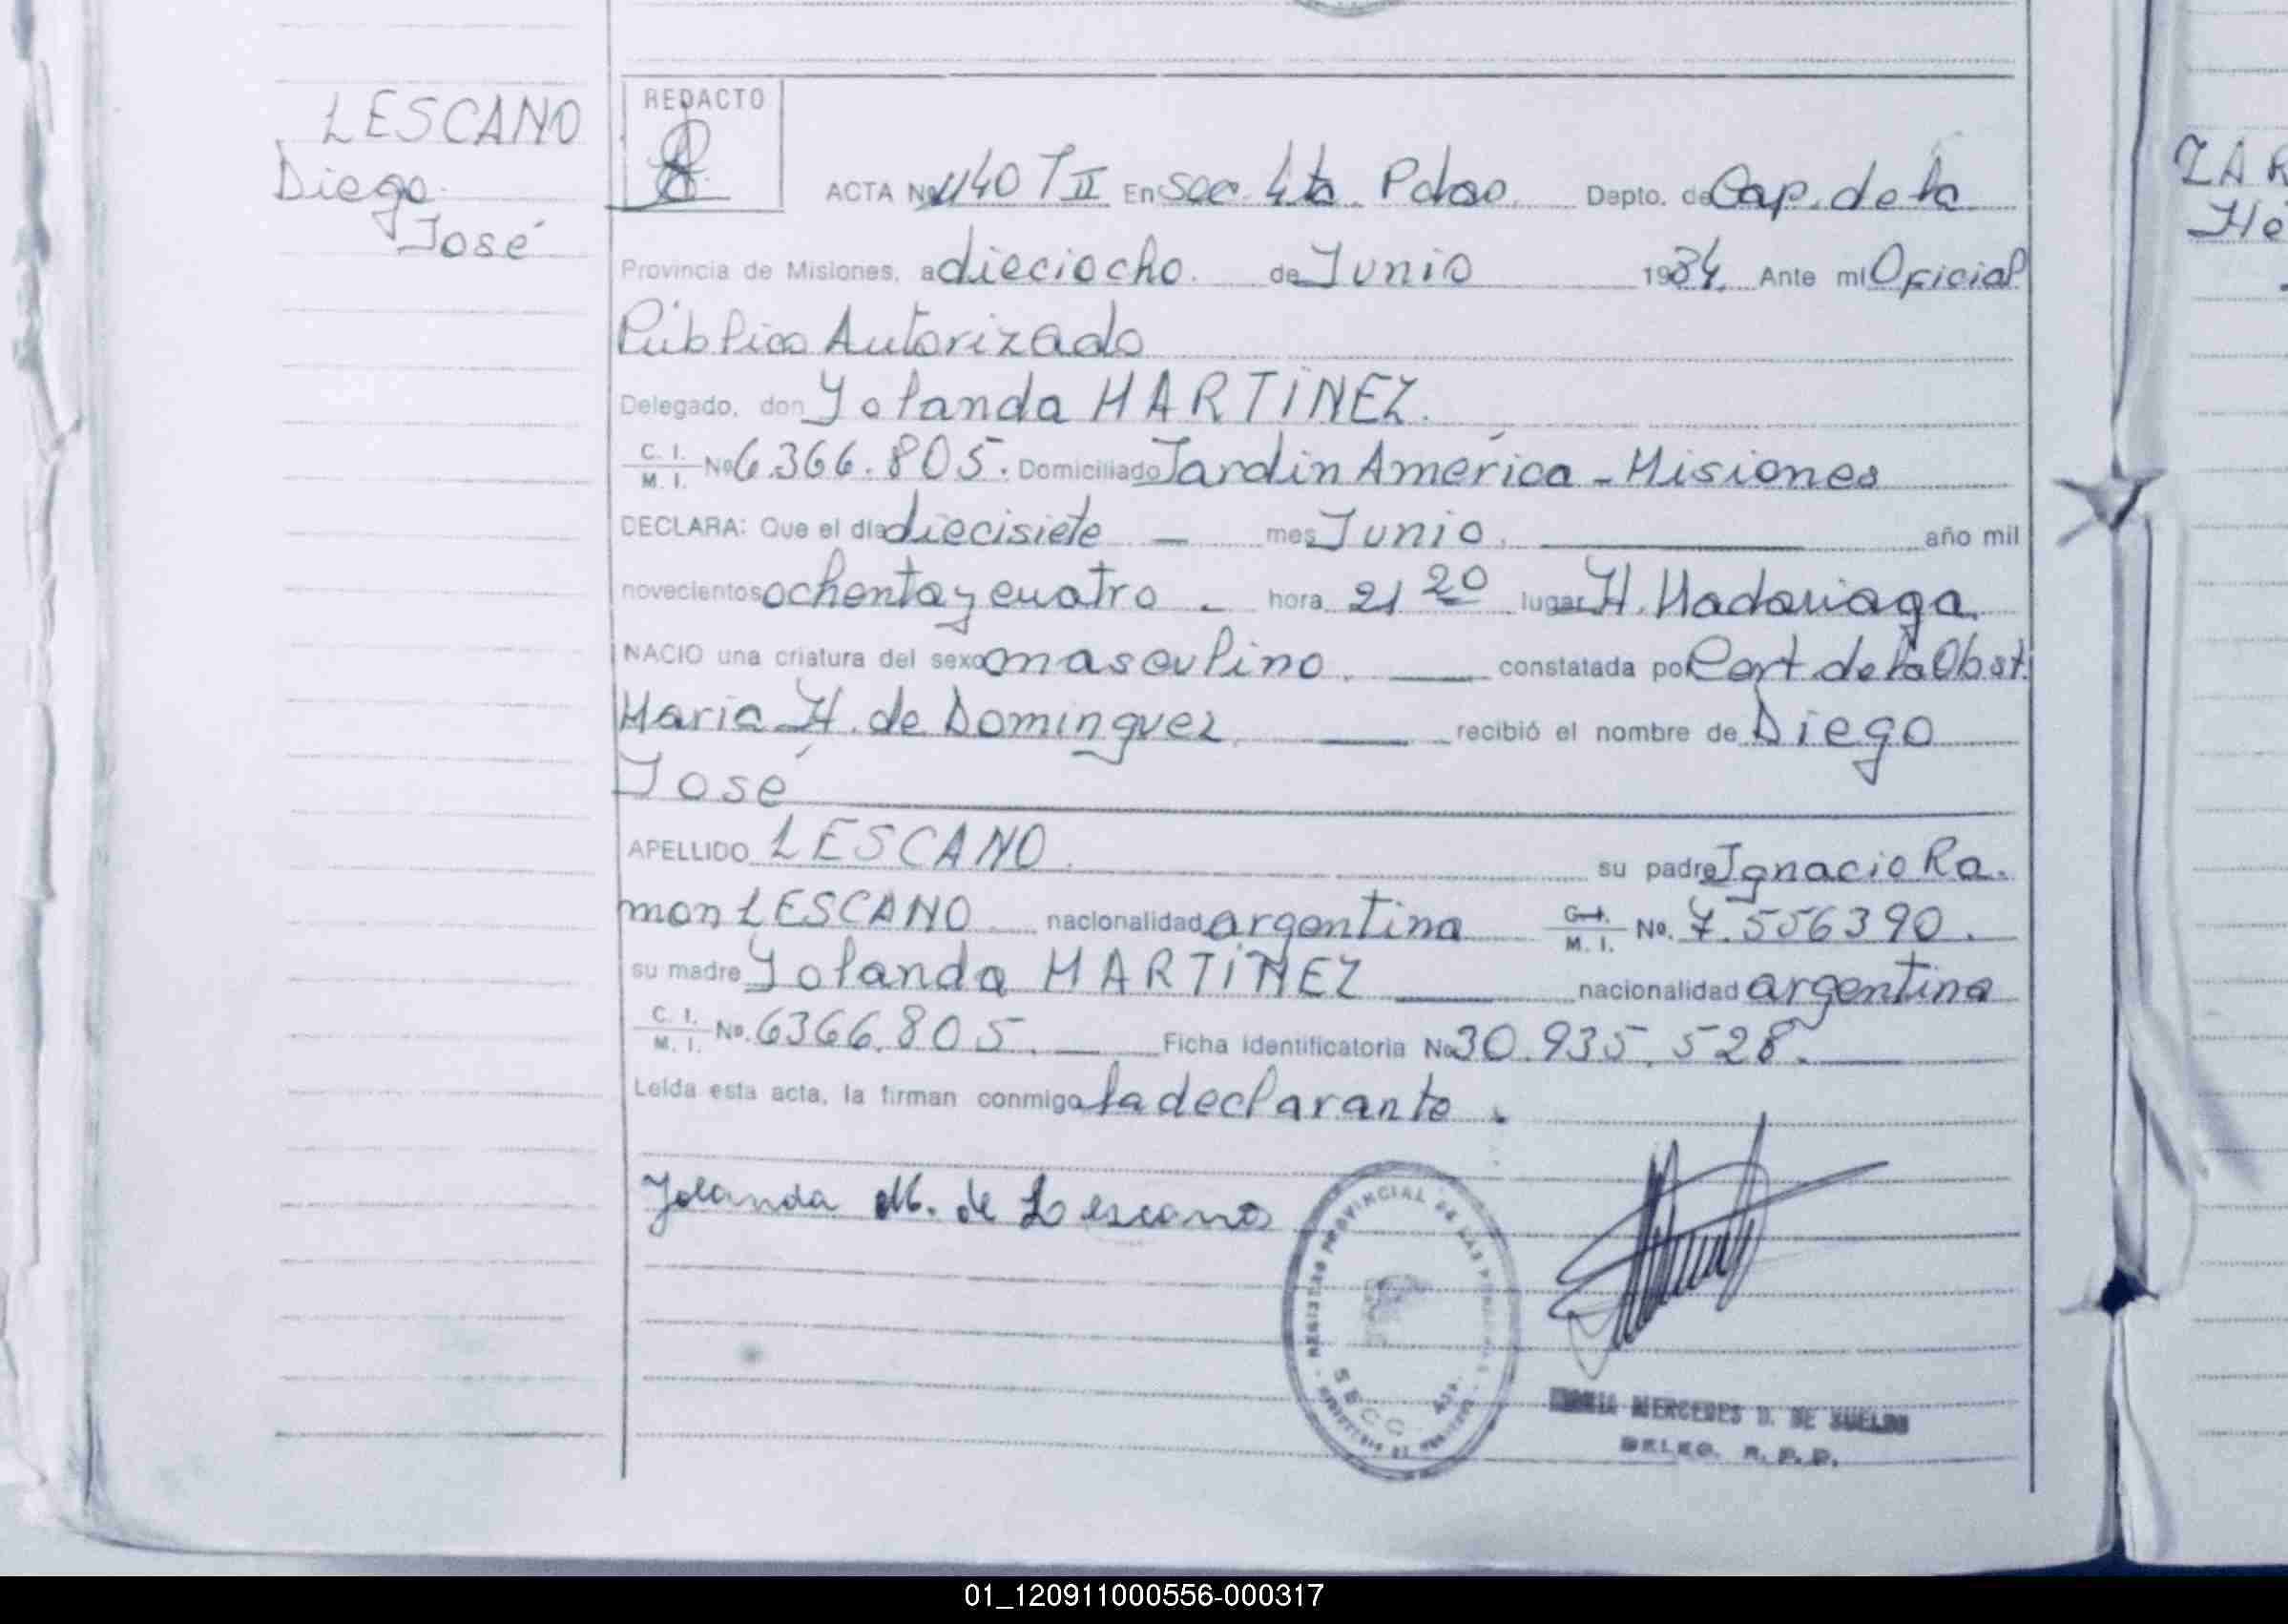 LESCANO
Diego
José
REDACTO
ACTA Nº 1140 T II En Sec. 4ta. Pdas. Depto. de Cap. de la
Provincia de Misiones, a dieciocho. de Junio 1984. Ante mi Oficial
Público Autorizado
Delegado, don Yolanda MARTINEZ.
C. I. / M. I. Nº 6.366.805. Domiciliado Jardin América - Misiones
DECLARA: Que el día diecisiete — mes Junio. — año mil
novecientos ochenta y cuatro - hora 21 20 lugar H. Madariaga
NACIO una criatura del sexo masculino. — constatada por Cert de la Obst.
Maria H. de Dominguez — recibió el nombre de Diego
José
APELLIDO LESCANO. su padre Ignacio Ra.
mon LESCANO nacionalidad argentina C. I. / M. I. No. 7.556390.
su madre Yolanda MARTINEZ — nacionalidad argentina
C. I. / M. I. No. 6366.805. — Ficha identificatoria No 30.935.528. —
Leída esta acta, la firman conmigo la declarante.
Yolanda M. de Lescano
REGISTRO PROVINCIAL DE LAS PERSONAS
SECC. 4ta.
MARIA MERCEDES D. DE
DELEG. R. P. P.
ZAR
Hé
01_120911000556-000317